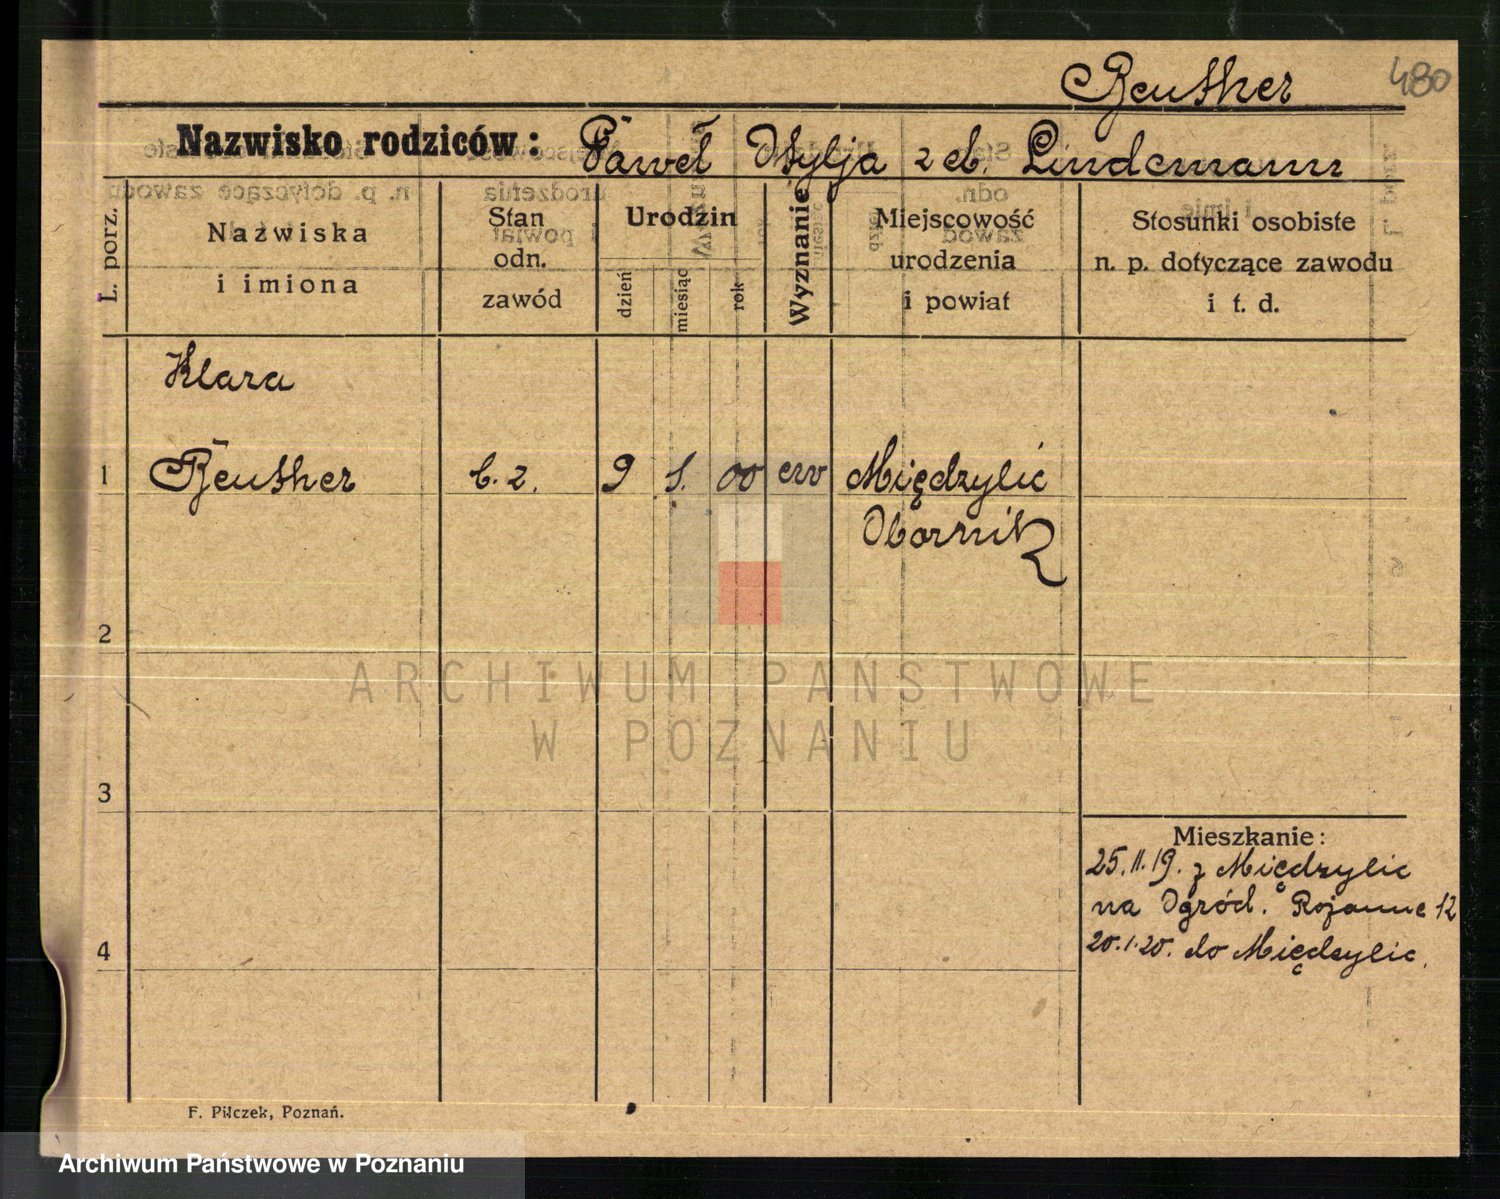 Reuther 480
Nazwisko rodziców: Paweł Otylja z d. Lindemann
L. porz.
Nazwiska
i imiona
Stan
odn.
zawód
Urodzin
dzień
miesiąc
rok
Wyznanie
Miejscowość
urodzenia
i powiat
Stosunki osobiste
n. p. dotyczące zawodu
i t. d.
Klara
1 Reuther b. z. 9 1. 00 ew Międzylić
Obornik
2
3
4
Mieszkanie:
25.11.19. z Międzylic
na Ogród. 12
20.1.20. do Międzylic.
F. Pilczek, Poznań.
ARCHIWUM PAŃSTWOWE
W POZNANIU
Archiwum Państwowe w Poznaniu